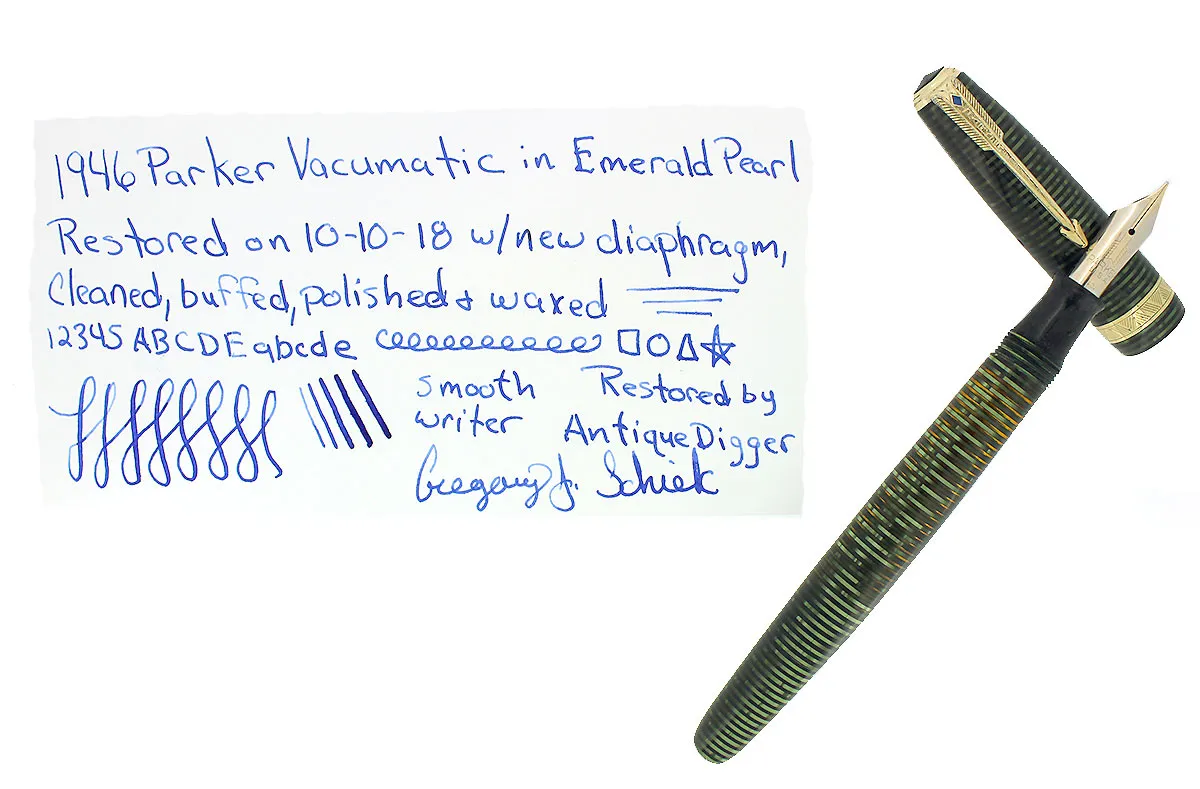 1946 Parker Vacumatic in Emerald Pearl
Restored on 10-10-18 w/new diaphragm,
Cleaned, buffed, polished & waxed
12345 ABCDE abcde
smooth
writer
Restored by
AntiqueDigger
Gregory J. Schiek